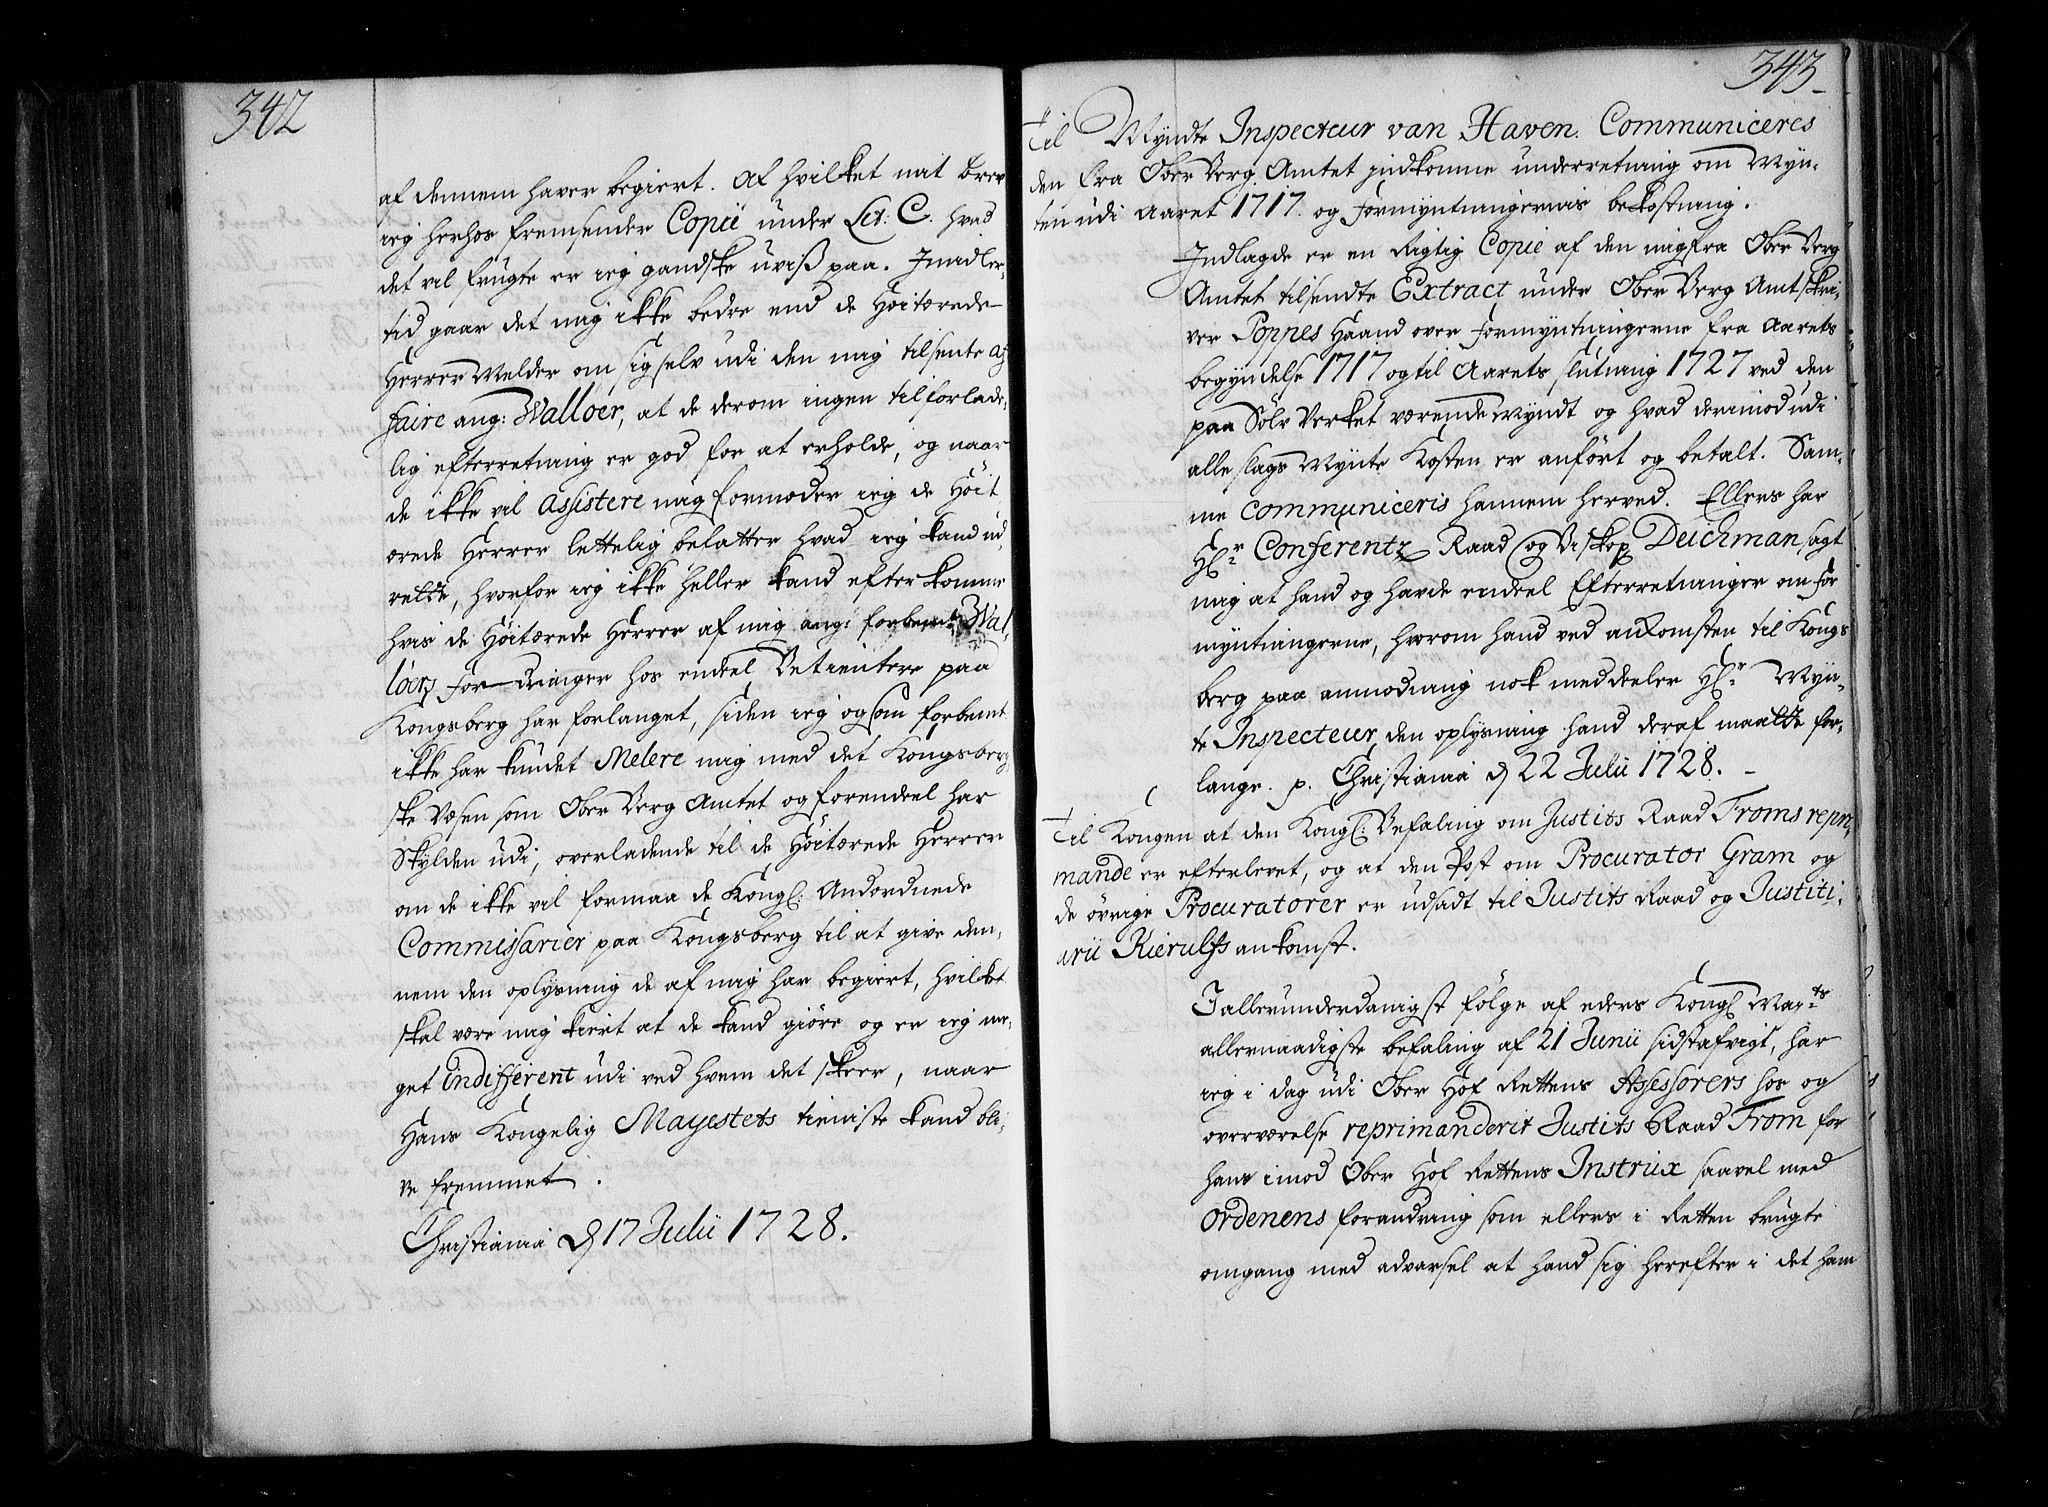 342
af dennem haver begiert. Af hvilket mit brev
ieg herhos fremsender Copii under Lit: C. hvad
det vil frugte er ieg gandske uviß paa. Imidler-
tid gaar det mig ikke bedre end de Høitærede
Herrer Melder om sig selv udi den mig tilsente af-
faire ang: Walloër, at de derom ingen tilforlade-
lig efterretning er god for at erholde, og naar
de ikke vil assistere mig formoder ieg de Høit
ærede Herrer lettelig befatter hvad ieg kand ud
rette, hvorfor ieg ikke heller kand efterkomme
hvis de Høitærede Herrer af mig ang: forbemt Wal-
löers fordringer hos endeel Betientere paa
Kongsberg har forlanget, siden ieg og som forbemt
ikke har kundet Melere mig med det Kongsberg-
ske Væsen som Ober Berg Amtet og forendeel har
Skylden udi, overladende til de Høitærede Herrer
om de ikke vil formaa de Kongl: Andordnede
Commissarier paa Kongsberg til at give den-
nem den oplysning de af mig har begiert, hvilket
skal være mig kiert at de kand giøre og er ieg me-
get indifferent udi ved hvem det skeer, naar
Hans Kongelig Mayestets tieniste kand bli-
ve fremmet.
Christiania d 17 Julii 1728.
343
Til Myndte Inspecteur van Haven. Communiceres
den fra Ober Berg Amtet indkomne underretning om Myn-
ten udi Aaret 1717. og Formyntningernis bekostning.
Indlagde er en Rigtig Copie af den mig fra Ober Berg
Amtet tilsendte Extract under Ober Berg Amtskri-
ver Poppes Haand over Formyntningerne fra Aarets
begyndelse 1717 og til Aarets slutning 1727 ved den
paa Sølv Verket værende Myndt og hvad derimod udi
alle slags Mynte Kosten er anført og betalt. Sam-
me communiceris hannem herved. Ellers har
Hr Conferentz Raad og Biskop Deichman sagt
mig at hand og havde endeel Efterretninger om for
myntningerne, hvorom hand ved ankomsten til Kongs
berg paa anmodning nok meddeeler Hr Myn-
te Inspecteur, den oplysning hand deraf maatte for-
lange. p. Christiania d 22 Julii 1728.
Til Kongen at den Kongl: Befaling om Justits Raad Froms repri-
mande er efterlevet, og at den Post om Procurator Gram og
de øvrige Procuratorer er udsadt til Justits Raad og Justiti-
arii Kierulfs ankomst.
I allerunderdanigst følge af eders Kongl Mayts
allernaadigste befaling af 21 Junii sidstafvigt, har
ieg i dag udi Ober Hof Rettens Assessorers hos og
overværelse reprimanderit Justits Raad From for
hans imod Ober Hof Rettens Instrux saavel med
Ordenens forandring som ellers i Retten brugte
omgang med advarsel at hand sig herefter i det ham